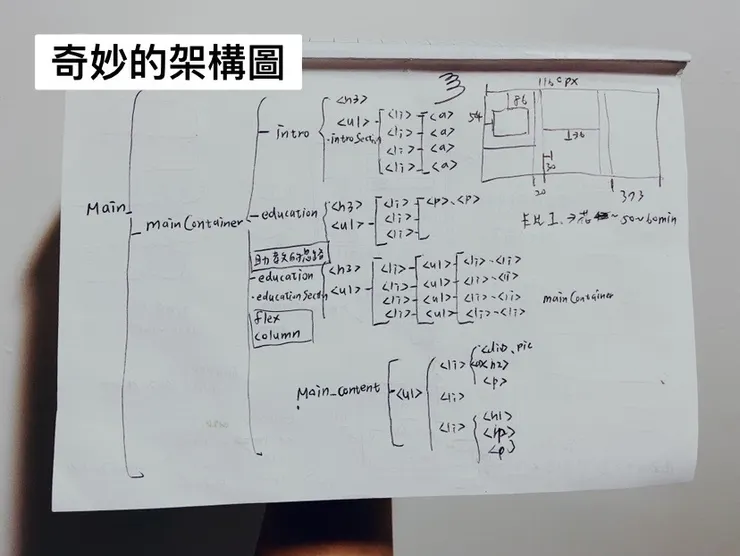 奇妙的架構圖
3
1160px
86
54
136
30
20
373
Main
mainContainer
intro
<h3>
<ul>
.introSection
<li> <a>
<li> <a>
<li> <a>
<li> <a>
education
<h3>
<ul>
<li> <p>、<p>
<li>
<li>
助教的思路
education
.educationSectin
flex
column
<h3>
<ul>
<li> <ul> <li>、<li>
<li> <ul> <li>、<li>
<li> <ul> <li>、<li>
<li> <ul> <li>、<li>
mainContainer
50~60min
Main_content
<ul>
<li>
<div>、pic
<h2>
<p>
<li>
<li>
<h1>
<p>